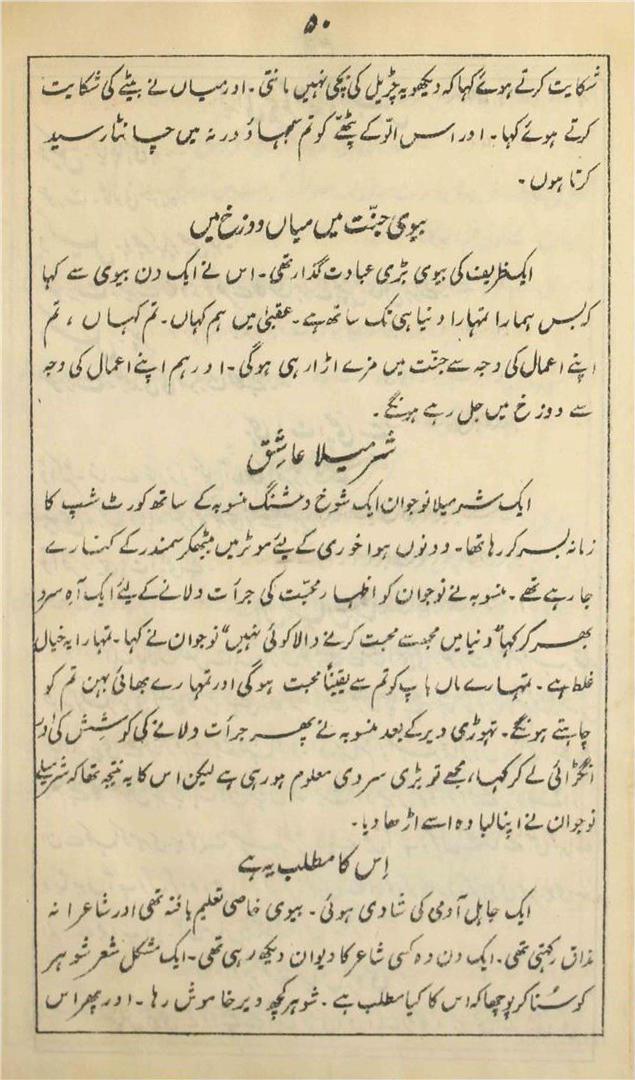 ۵۰
شکایت کرتے ہوئے کہا کہ دیکھو یہ چڑیل کی بچی نہیں مانتی۔ اور میاں نے بیٹے کی شکایت
کرتے ہوئے کہا۔ اور اس الّو کے پٹھے کو تم سمجھاؤ ورنہ میں چانٹا رسید
کرتا ہوں۔
بیوی جنّت میں میاں دوزخ میں
ایک ظریف کی بیوی بڑی عبادت گذار تھی۔ اس نے ایک دن بیوی سے کہا
کہ بس ہمارا تمہارا دنیا ہی تک ساتھ ہے۔ عقبیٰ میں ہم کہاں۔ تم کہاں، تم
اپنے اعمال کی وجہ سے جنّت میں مزے اڑا رہی ہوگی۔ اور ہم اپنے اعمال کی وجہ
سے دوزخ میں جل رہے ہونگے۔
شرمیلا عاشق
ایک شرمیلا نوجوان ایک شوخ و شنگ منسوبہ کے ساتھ کورٹ شپ کا
زمانہ بسر کر رہا تھا۔ دونوں ہوا خوری کے لئے موٹر میں بیٹھکر سمندر کے کنارے
جا رہے تھے۔ منسوبہ نے نوجوان کو اظہار محبّت کی جرأت دلانے کے لئے ایک آہ سرد
بھر کر کہا "دنیا میں مجھ سے محبت کرنے والا کوئی نہیں" نوجوان نے کہا۔ تمہارا یہ خیال
غلط ہے۔ تمہارے ماں باپ کو تم سے یقیناً محبت ہوگی اور تمہارے بھائی بہن تم کو
چاہتے ہونگے۔ تھوڑی دیر کے بعد منسوبہ نے پھر جرأت دلانے کی کوشش کی اور
انگڑائی لے کر کہا، مجھے تو بڑی سردی معلوم ہو رہی ہے لیکن اس کا یہ نتیجہ تھا کہ شرمیلے
نوجوان نے اپنا لبادہ اسے اڑھا دیا۔
اِس کا مطلب یہ ہے
ایک جاہل آدمی کی شادی ہوئی۔ بیوی خاصی تعلیم یافتہ تھی اور شاعرانہ
مذاق رکھتی تھی۔ ایک دن وہ کسی شاعر کا دیوان دیکھ رہی تھی۔ ایک مشکل شعر شوہر
کو سُنا کر پوچھا کہ اس کا کیا مطلب ہے۔ شوہر کچھ دیر خاموش رہا۔ اور پھر اس